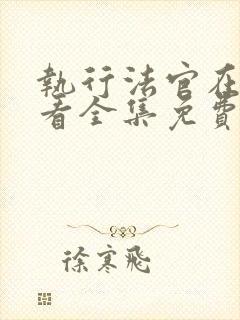 執行法官在
看全集免費
徐寒飛